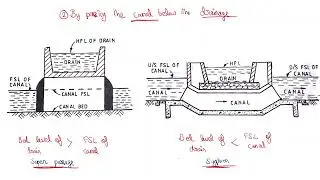 ② By passing the canal below the drainage
HFL OF DRAIN
DRAIN
FSL OF CANAL
CANAL FSL
CANAL BED
Bed level of drain > FSL of canal
Super passage
U/S FSL OF CANAL
HFL
DRAIN
D/S FSL OF CANAL
CANAL
CANAL
Bed level of drain < FSL of canal
Syphon